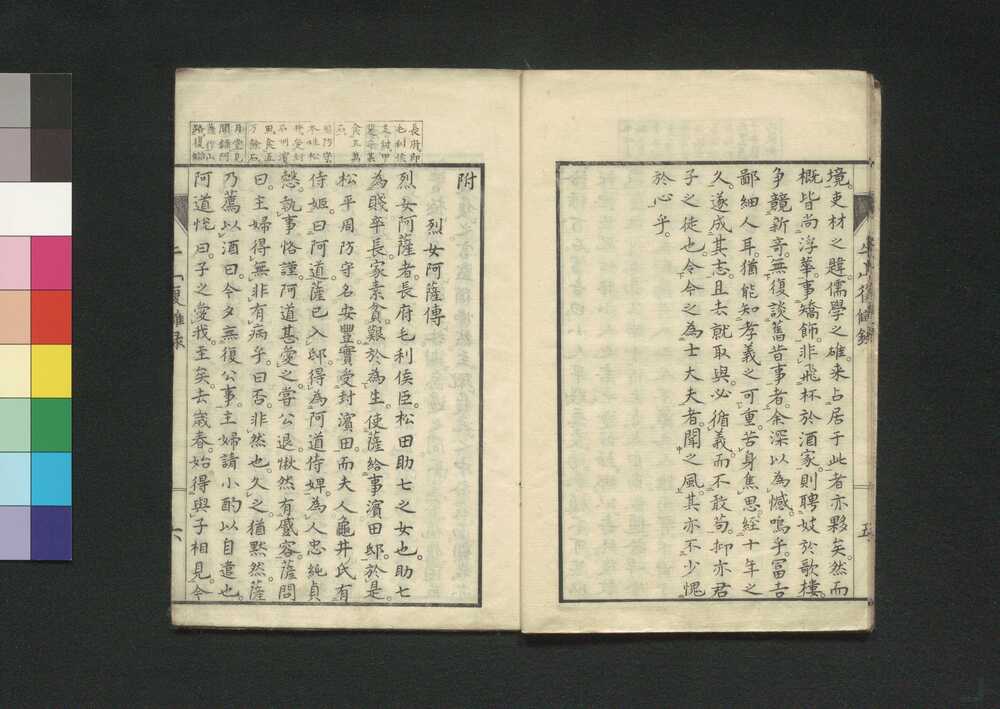 境吏材之韙儒學之碓来占居于此者亦夥矣然而
概皆尚浮華事矯飾非飛杯於酒家則聘妓於歌樓
争競新奇無復談舊昔事者余深以為憾嗚乎冨吉
鄙細人耳猶能知孝義之可重苦身焦思経十年之
久遂成其志且去就取與必循義而不敢苟抑亦君
子之徒也令今之為士大夫者聞之風其亦不少愧
於心乎
五
附
烈女阿薩傳
烈女阿薩者長府毛利侯臣松田助七之女也助七
為賤卒長家素貪艱於為生使薩給事濱田邸於是
松平周防守名安豐實受封濱田而夫人龜井氏有
侍姬曰阿道薩已入邸得為阿道侍婢為人忠純貞
愨執事恪謹阿道甚愛之嘗公退愀然有慼容薩問
曰主婦得無非有病乎曰否非然也久之猶黙然薩
乃薦以酒曰今夕無復公事主婦請小酌以自遣也
阿道悅曰子之愛我至矣去歳春始得與子相見今
六
長府即
毛利侯
食五萬
周防守
本姓松
石州濱
田食五
万餘石